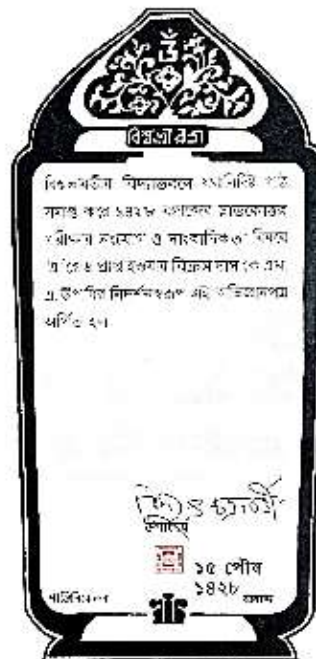 বিশ্বভারতী
বিশ্বভারতীর বিদ্যাভবনে যথানির্দিষ্ট পাঠ
সমাপ্ত করে ১৪২৮ বঙ্গাব্দের স্নাতকোত্তর
পরীক্ষায় সংযোগ ও সাংবাদিকতা বিষয়ে
প্রাপ্ত হওয়ায় বিক্রম দাস কে এম.
এ. উপাধির নিদর্শনস্বরূপ এই অভিজ্ঞানপত্র
অর্পিত হল
উপাচার্য
১৫ পৌষ
১৪২৮ বঙ্গাব্দ
শান্তিনিকেতন